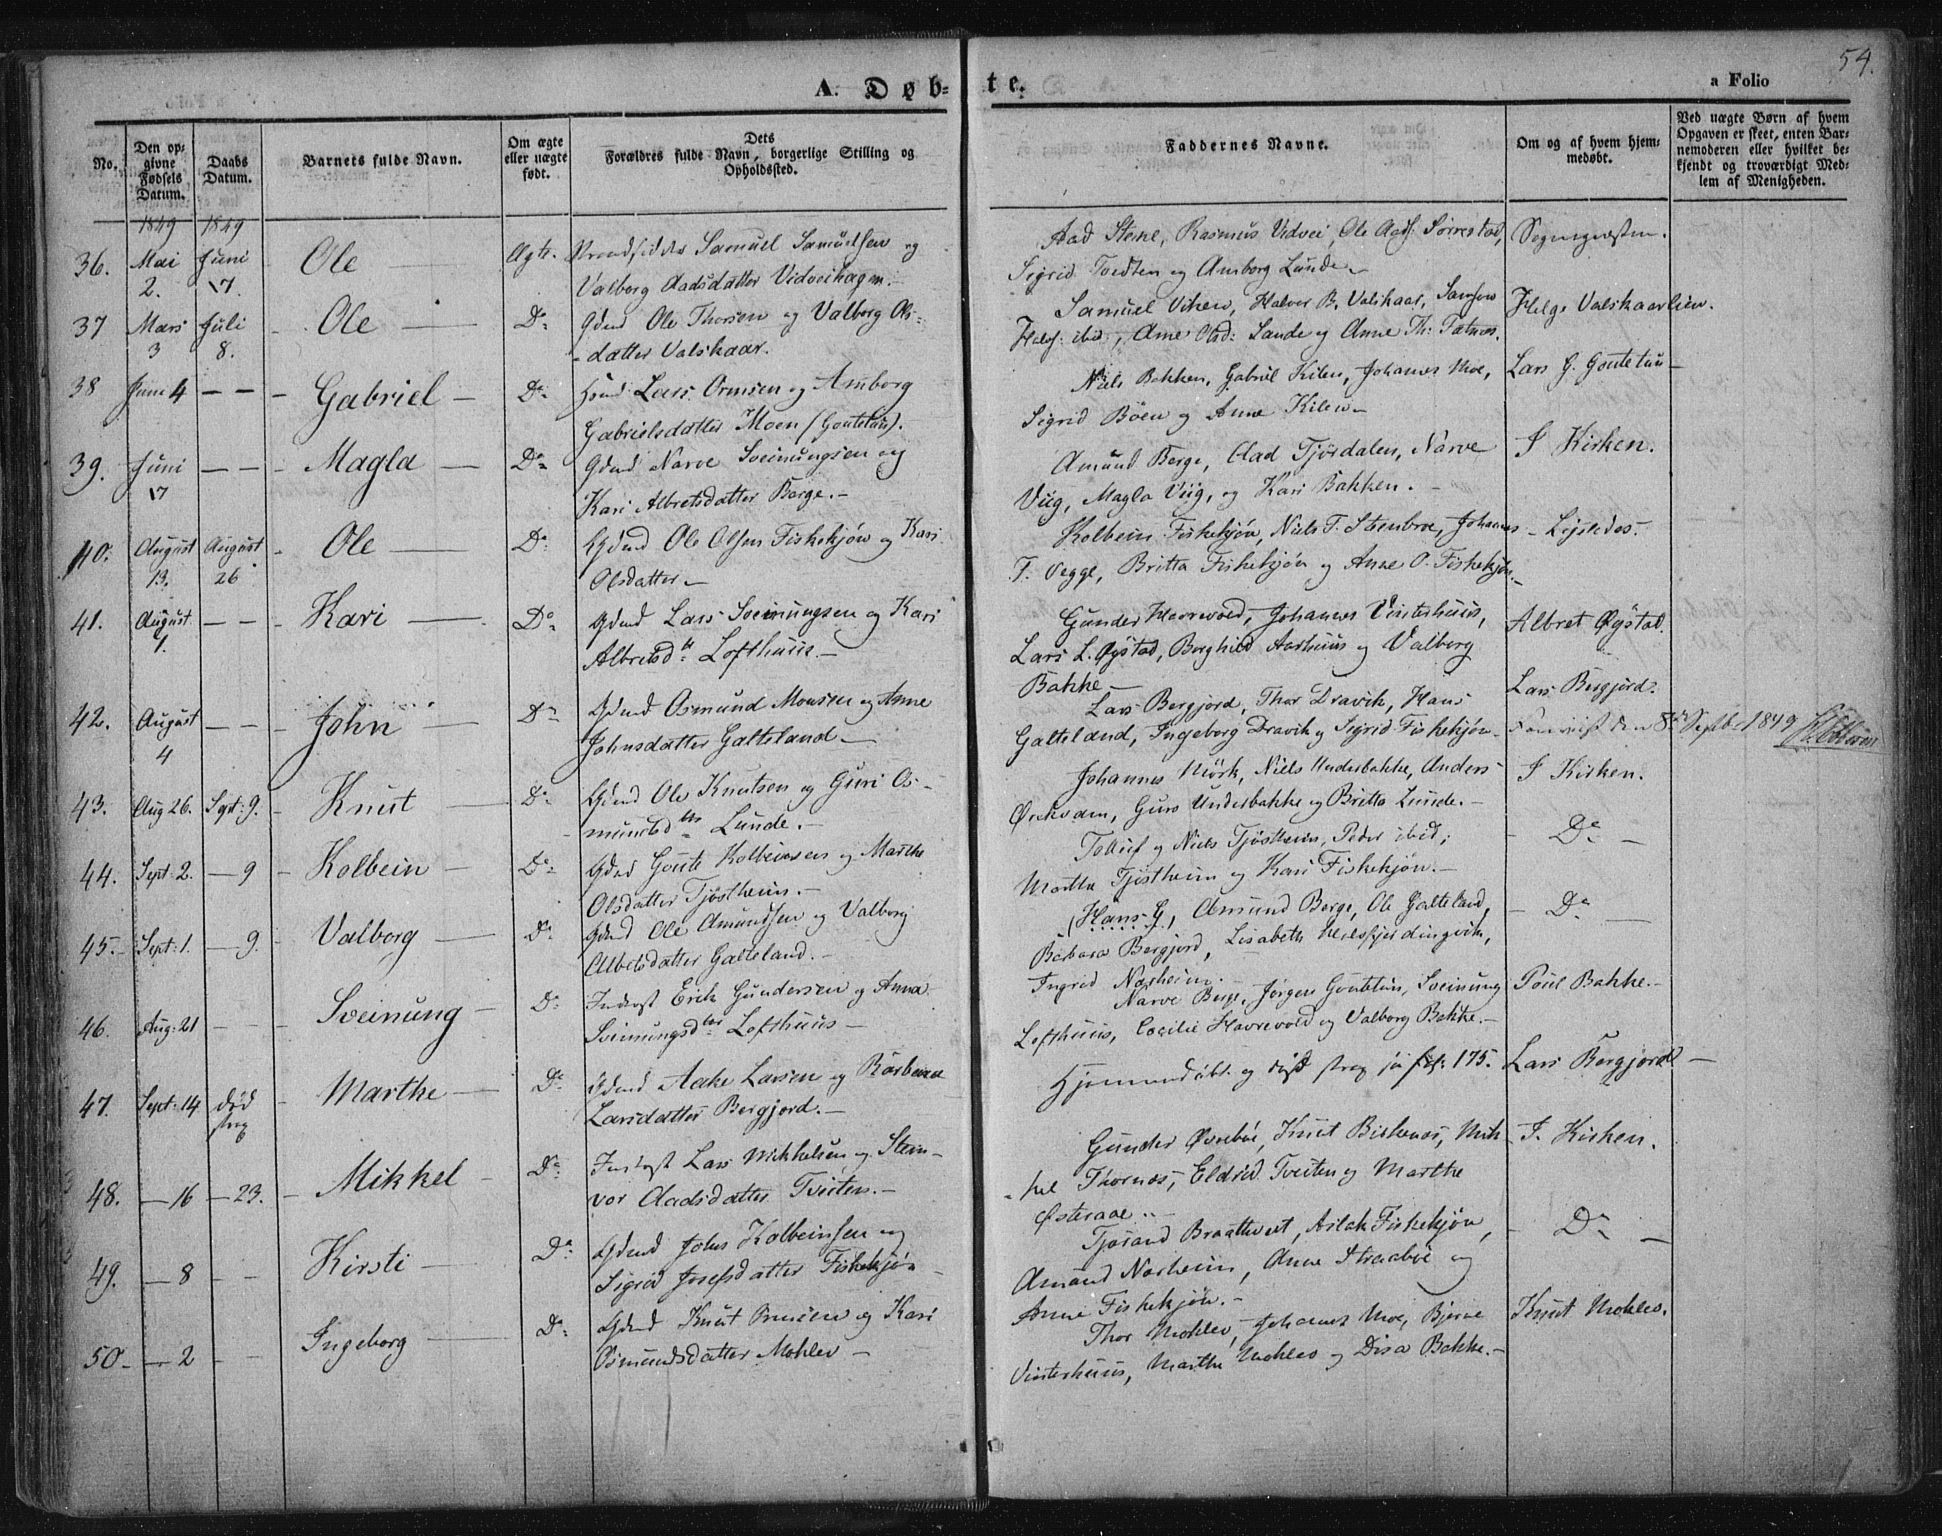 54.
A. Døb- te.
a Folio
No.
Den op-
givne
Fødsels
Datum.
Daabs
Datum.
Barnets fulde Navn.
Om ægte
eller uægte
født.
Dets
Forældres fulde Navn, borgerlige Stilling og
Opholdssted.
Faddernes Navne.
Om og af hvem hjem-
medøbt.
Ved uægte Børn af hvem
Opgaven er skeet, enten Bar-
nemoderen eller hvilket be-
kjendt og troværdigt Med-
lem af Menigheden.
1849 1849
36. Mai 2. Juni 17. Ole — Ægte. Samuel Samuelsen og
Valborg Aadsdatter Vidveihagen.—
Aad Stene, Rasmus Vidvei, Ole Aads. Sørrestad,
Sigrid Tvedten og Amborg Lunde.—
Sognepræsten.
37 Mars 3 Juli 8. Ole — Do Gdmd Ole Thorsen og Valborg Ols-
datter Valskaar.
Samuel Viken, Halvor B. Valskaar,
Halvs. ibid, Anne Olsd: Sande og Anne Th:
Helge Valskaarlien.
38 Juni 4 — — Gabriel — Do Hsmd Lars Ormsen og Amborg
Gabrielsdatter Moen (Goutetun).
Niels Bakken, Gabriel Kilen, Johannes Moe,
Sigrid Böen og Anne Kilen—
Lars G. Goutetun—
39. Juni 17 — — Magla — Do Gdmd Narve Sveinungsen og
Kari Albretsdatter Berge.—
Amund Berge, Aad Tjørdalen, Narve
Viig, Magla Viig, og Kari Bakken.—
I Kirken.
40. August 13. August 26 Ole — Do Gdmd Ole Olsen Fiskekjøn og Kari
Olsdatter—
Kolbein Fiskekjøn, Niels T. Steenbroe, Johannes
T. Vegge, Britta Fiskekjøn og Anne O. Fiskekjøn.—
Ligeledes.—
41. August 1. — — Kari — Do Gdmd Lars Sveinungsen og Kari
Albretsdtr Lofthuus.—
Gunder Havrevold, Johannes Vinterhuus,
Lars L. Øystad, Borghild Aarhuus og Valborg
Bakke—
Albret Øystad.
42. August 4 — — John — Do Gdmd Osmund Monsen og Anne
Johnsdatter Galteland—
Lars Bergjord, Thor Dravik, Hans
Galteland, Ingeborg Dravik og Sigrid Fiskekjøn—
Lars Bergjord.
den 8de Septbr 1849
43. Aug 26. Sept: 9. Knut — Do Gdmd Ole Knutsen og Guri Os-
mundsdtr Lunde.—
Johannes Mörk, Niels Underbakke, Anders
Guro Underbakke og Britta Lunde.—
I Kirken.
44. Sept: 2. — 9 Kolbein — Do Gdmd Goute Kolbeinsen og Marthe
Olsdatter Tjöstheim.—
Tolluf og Niels Tjöstheim, Peder ibid;
Marthe Tjöstheim og Kari Fiskekjøn.—
Do
45. Sept: 1. — 9. Valborg — Do Gdmd Ole Amundsen og Valborg
Galteland.—
(Hans G), Amund Berge, Ole Galteland,
Barbara Bergjord, Lisabeth
Ingrid Norheim.—
Do
46. Aug: 21 — — Sveinung — Do Inderst Erik Gundersen og Anna
Sveinungsdtr Lofthuus—
Narve Berge, Jørgen Goutetun, Sveinung
Lofthuus, Cecilie Havrevold og Valborg Bakke.—
Poul Bakke.—
47. Sept: 14 død strax Marthe — Do Gdmd Aake Larsen og Barbara
Larsdatter Bergjord.—
Hjemmedøbt og død strax 175.
Lars Bergjord—
48. — 16 — 23. Mikkel — Do Inderst Lars Mikkelsen og Stein-
vor Aadsdatter Tveiten.—
Gunder Øvrebø, Knut Mik-
kel Thornes, Eldrid Tveiten og Marthe
Østeraae.—
I Kirken.
49. — 8 — — Kirsti — Do Gdmd Johs Kolbeinsen og
Sigrid Josefsdatter Fiskekjøn—
Tjøraand Braathveit, Aslak Fiskekjøn,
Amund Norheim, Anne Straabøe og
Anne Fiskekjøn.—
Do
50.— — 2 — — Ingeborg — Do Gdmd Knut Ormsen og Kari
Osmundsdatter Mohlev—
Thor Mohlev, Johannes Moe, Bjørn
Vinterhuus, Marthe Mohlev og Disa Bakke.—
Knut Mohlev.